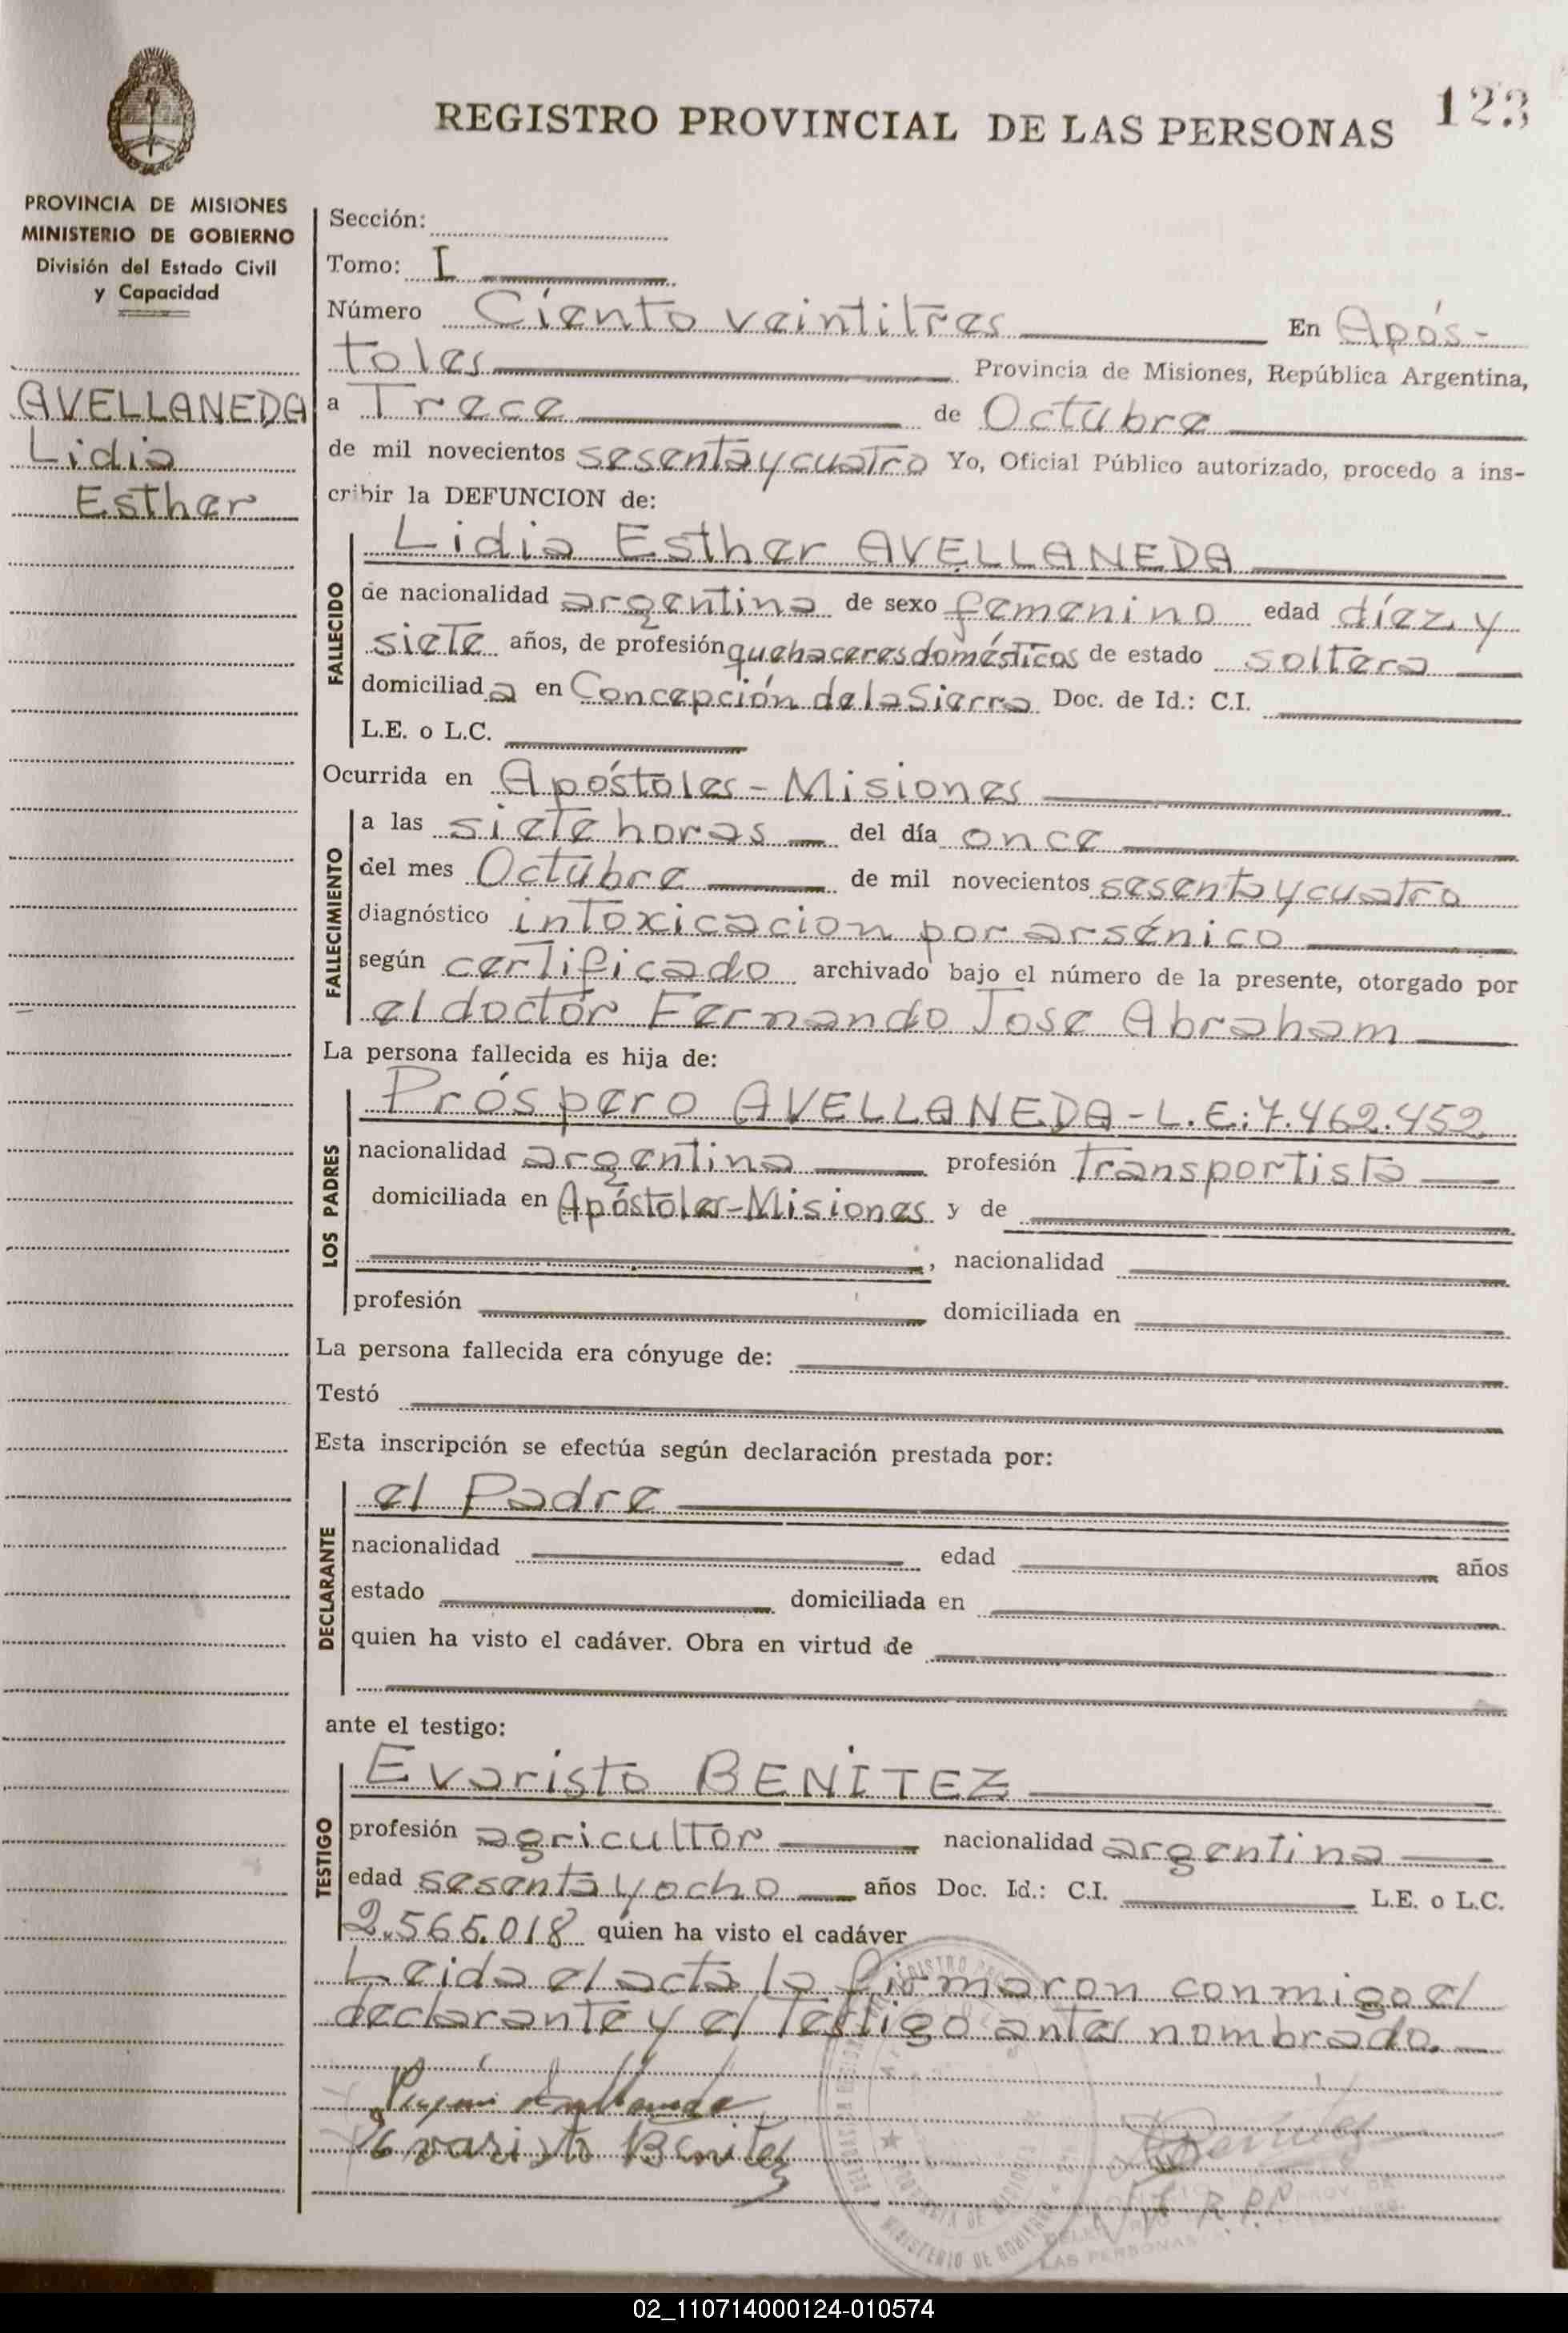 REGISTRO PROVINCIAL DE LAS PERSONAS 123
PROVINCIA DE MISIONES
MINISTERIO DE GOBIERNO
División del Estado Civil
y Capacidad
AVELLANEDA
Lidia
Esther
Sección:
Tomo: I
Número Ciento veintitres En Após-
toles Provincia de Misiones, República Argentina,
a Trece de Octubre
de mil novecientos sesenta y cuatro Yo, Oficial Público autorizado, procedo a ins-
cribir la DEFUNCION de:
FALLECIDO
Lidia Esther AVELLANEDA
de nacionalidad argentina de sexo femenino edad díez y
siete años, de profesión quehaceres domésticos de estado soltera
domiciliada en Concepción de la Sierra Doc. de Id.: C.I.
L.E. o L.C.
Ocurrida en Apóstoles - Misiones
FALLECIMIENTO
a las siete horas del día once
del mes Octubre de mil novecientos sesenta y cuatro
diagnóstico intoxicacion por arsénico
según certificado archivado bajo el número de la presente, otorgado por
el doctor Fernando Jose Abraham
La persona fallecida es hija de:
LOS PADRES
Próspero AVELLANEDA - L.E: 7.462.452
nacionalidad argentina profesión transportista
domiciliada en Apóstoles-Misiones y de
, nacionalidad
profesión domiciliada en
La persona fallecida era cónyuge de:
Testó
Esta inscripción se efectúa según declaración prestada por:
DECLARANTE
el Padre
nacionalidad edad años
estado domiciliada en
quien ha visto el cadáver. Obra en virtud de
ante el testigo:
TESTIGO
Evaristo BENITEZ
profesión agricultor nacionalidad argentina
edad sesenta y ocho años Doc. Id.: C.I. L.E. o L.C.
2.565.018 quien ha visto el cadáver
Leida el acta la firmaron conmigo el
declarante y el testigo antes nombrado.
Evaristo Benitez
J. R. P. P.
MINISTERIO DE GOBIERNO
LAS PERSONAS
02_110714000124-010574